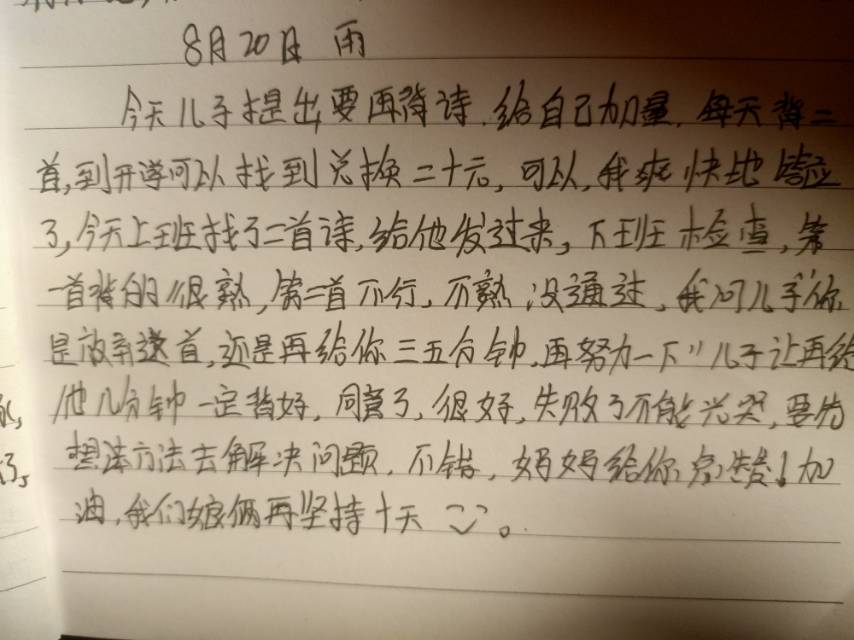 8月20日 雨
今天儿子提出要再背诗，给自己加量，每天背二
首，到开学可以找到兑换二十元，可以，我爽快地答应
了，今天上班找了二首诗，给他发过来，下班检查，第
一首背的很熟，第二首不行，不熟，没通过，我问儿子“你
是放弃这首，还是再给你三五分钟，再努力一下”儿子让再给
他几分钟一定背好，同意了，很好，失败了不能光哭，要先
想法方法去解决问题，不错，妈妈给你点赞！加
油，我们娘俩再坚持十天 。